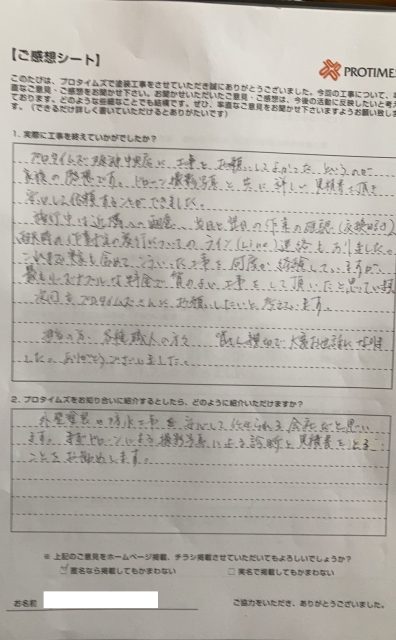 【ご感想シート】
PROTIMES
このたびは、プロタイムズで塗装工事をさせていただき誠にありがとうございました。今回の工事について、率
直なご意見・ご感想をお聞かせ下さい。お聞かせいただいたご意見・ご感想は、今後の活動に反映したいと考え
ております。どのような些細なことでも結構です。ぜひ、率直なご意見をお聞かせ下さいますようお願い致しま
す。（できるだけ詳しく書いていただけるとありがたいです）
1. 実際に工事を終えていかがでしたか？
プロタイムズ 中央店に工事をお願いしてよかったというのが
最後の感想です。ドローン撮影写真と共に詳しい見積書を頂き
安心して依頼することができました。
施行中は近隣への 、当日と翌日の作業の確認
についてのライン(Line)連絡もありました。
これまで実家も含めてこういった工事を何度か経験していますが、
最もリーズナブルな料金で質のよい工事をして頂いたと思っています。
次回もプロタイムズさんにお願いしたいと考えています。
担当の方、各種職人の方々 大変お世話になりま
した。ありがとうございました。
2. プロタイムズをお知り合いに紹介するとしたら、どのように紹介いただけますか？
外壁塗装や防水工事を安心して任せられる会社だと思い
ます。まずドローンによる撮影写真による診断と見積書をとる
ことをお勧めします。
※ 上記のご意見をホームページ掲載、チラシ掲載させていただいてもよろしいでしょうか？
匿名なら掲載してもかまわない
□ 実名で掲載してもかまわない
お名前
ご協力をいただき、ありがとうございました。